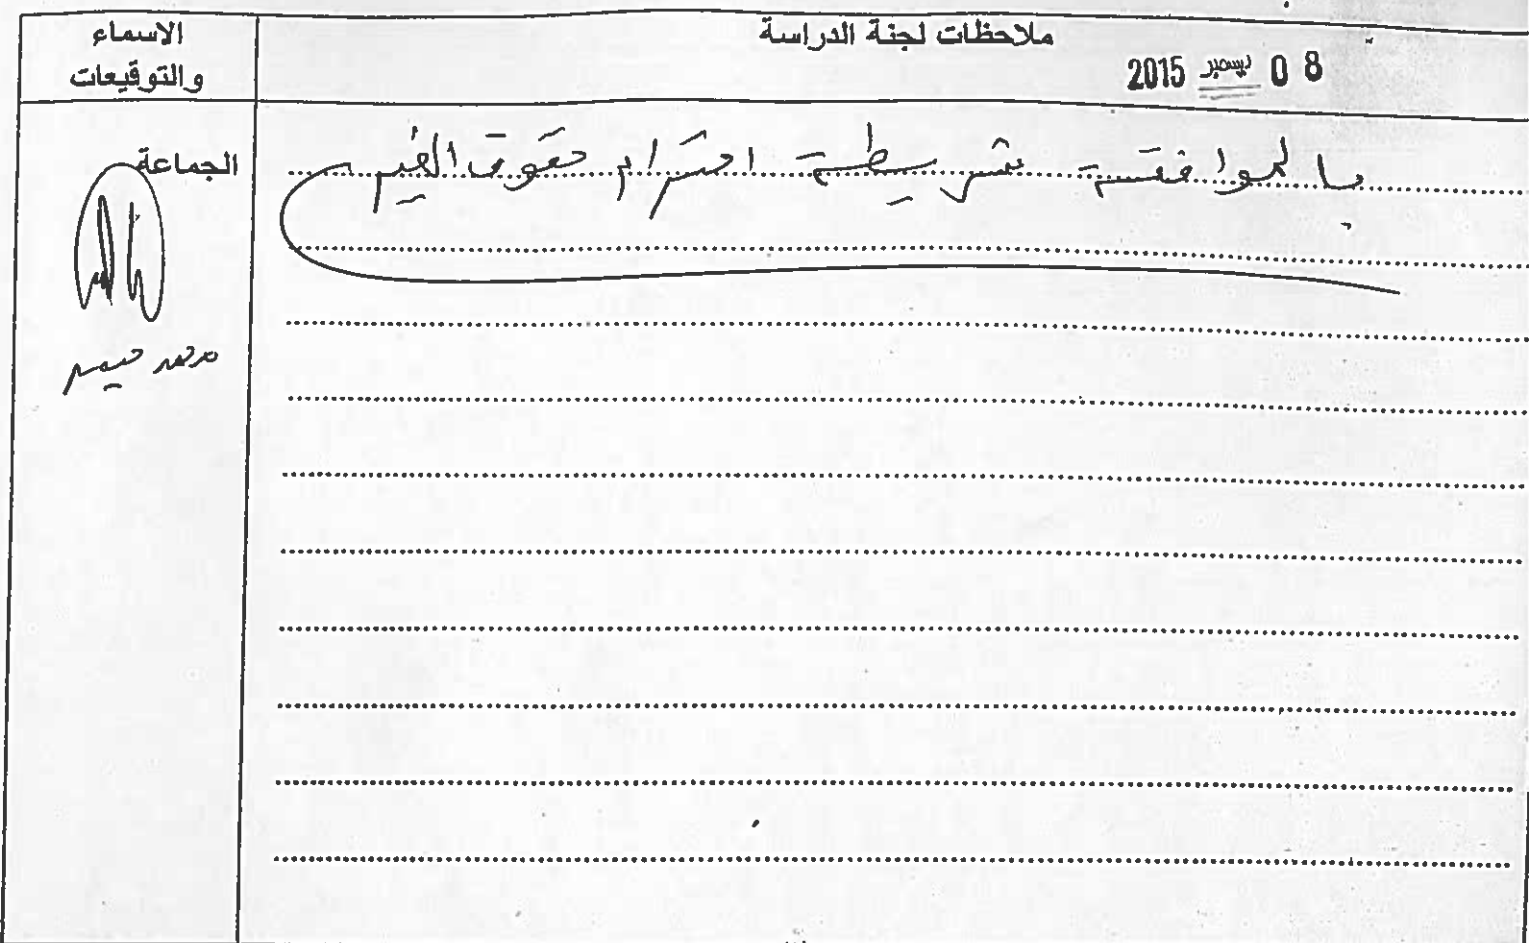 ملاحظات لجنة الدراسة
0 8 ديسمبر 2015
الاسماء
والتوقيعات
بالموافقة شريطة احترام حقوق الغير
الجماعة
محمد